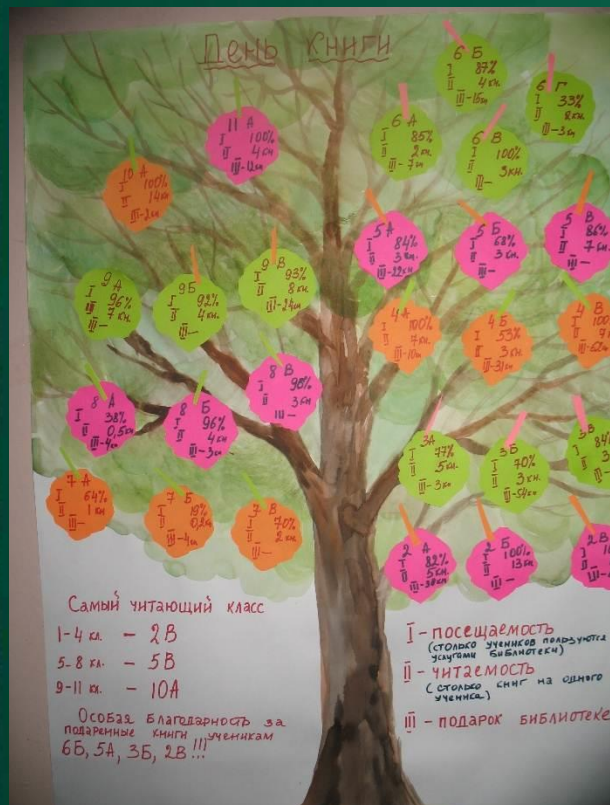 День книги
6 Б
I 87%
II 4 кн.
III-15кн
6 Г
I 33%
II 2 кн.
III-3кн
11 А
I 100%
II 4 кн
III-12кн
6 А
I 85%
II 2 кн.
III-7кн
6 В
I 100%
II 3кн.
III-
10 А
I 100%
II 14кн
III-2кн
5 А
I 84%
II 3 кн.
III-22кн
5 Б
I 68%
II 3 кн.
III-
5 В
I 86%
II 7 кн.
III-
9 А
I 96%
II 7 кн.
III-
9Б
I 92%
II 4 кн.
III-
9 В
I 93%
II 8 кн.
III-24кн
4 А
I 100%
II 7кн.
III-10кн
4 Б
I 53%
II 3 кн.
III-31кн
4 В
I 100
II
III-62кн
8 А
I 38%
II 0,5кн
III-4кн
8 Б
I 96%
II 4 кн
III-3кн
8 В
I 98%
II 3 кн
III-
3А
I 77%
II 5 кн.
III-3кн
3Б
I 70%
II 3 кн.
III-54кн
3В
84%
7 А
I 64%
II 1 кн
III-
7 Б
I 19%
II 0,2кн
III-4кн
7 В
I 70%
II 2 кн.
III-
2 А
I 82%
II 5 кн.
III-38кн
2 Б
I 100%
II 13кн
III-
2В
Самый читающий класс
1-4 кл. - 2В
5-8 кл. - 5В
9-11 кл. - 10А
Особая благодарность за
подаренные книги ученикам
6Б, 5А, 3Б, 2В!!!
I - посещаемость
(столько учеников пользуются
услугами библиотеки)
II - читаемость
(столько книг на одного
ученика)
III - подарок библиотеке